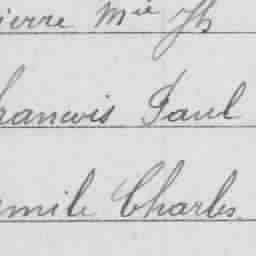 ierre Mie Jh
rancois Paul
emile Charles